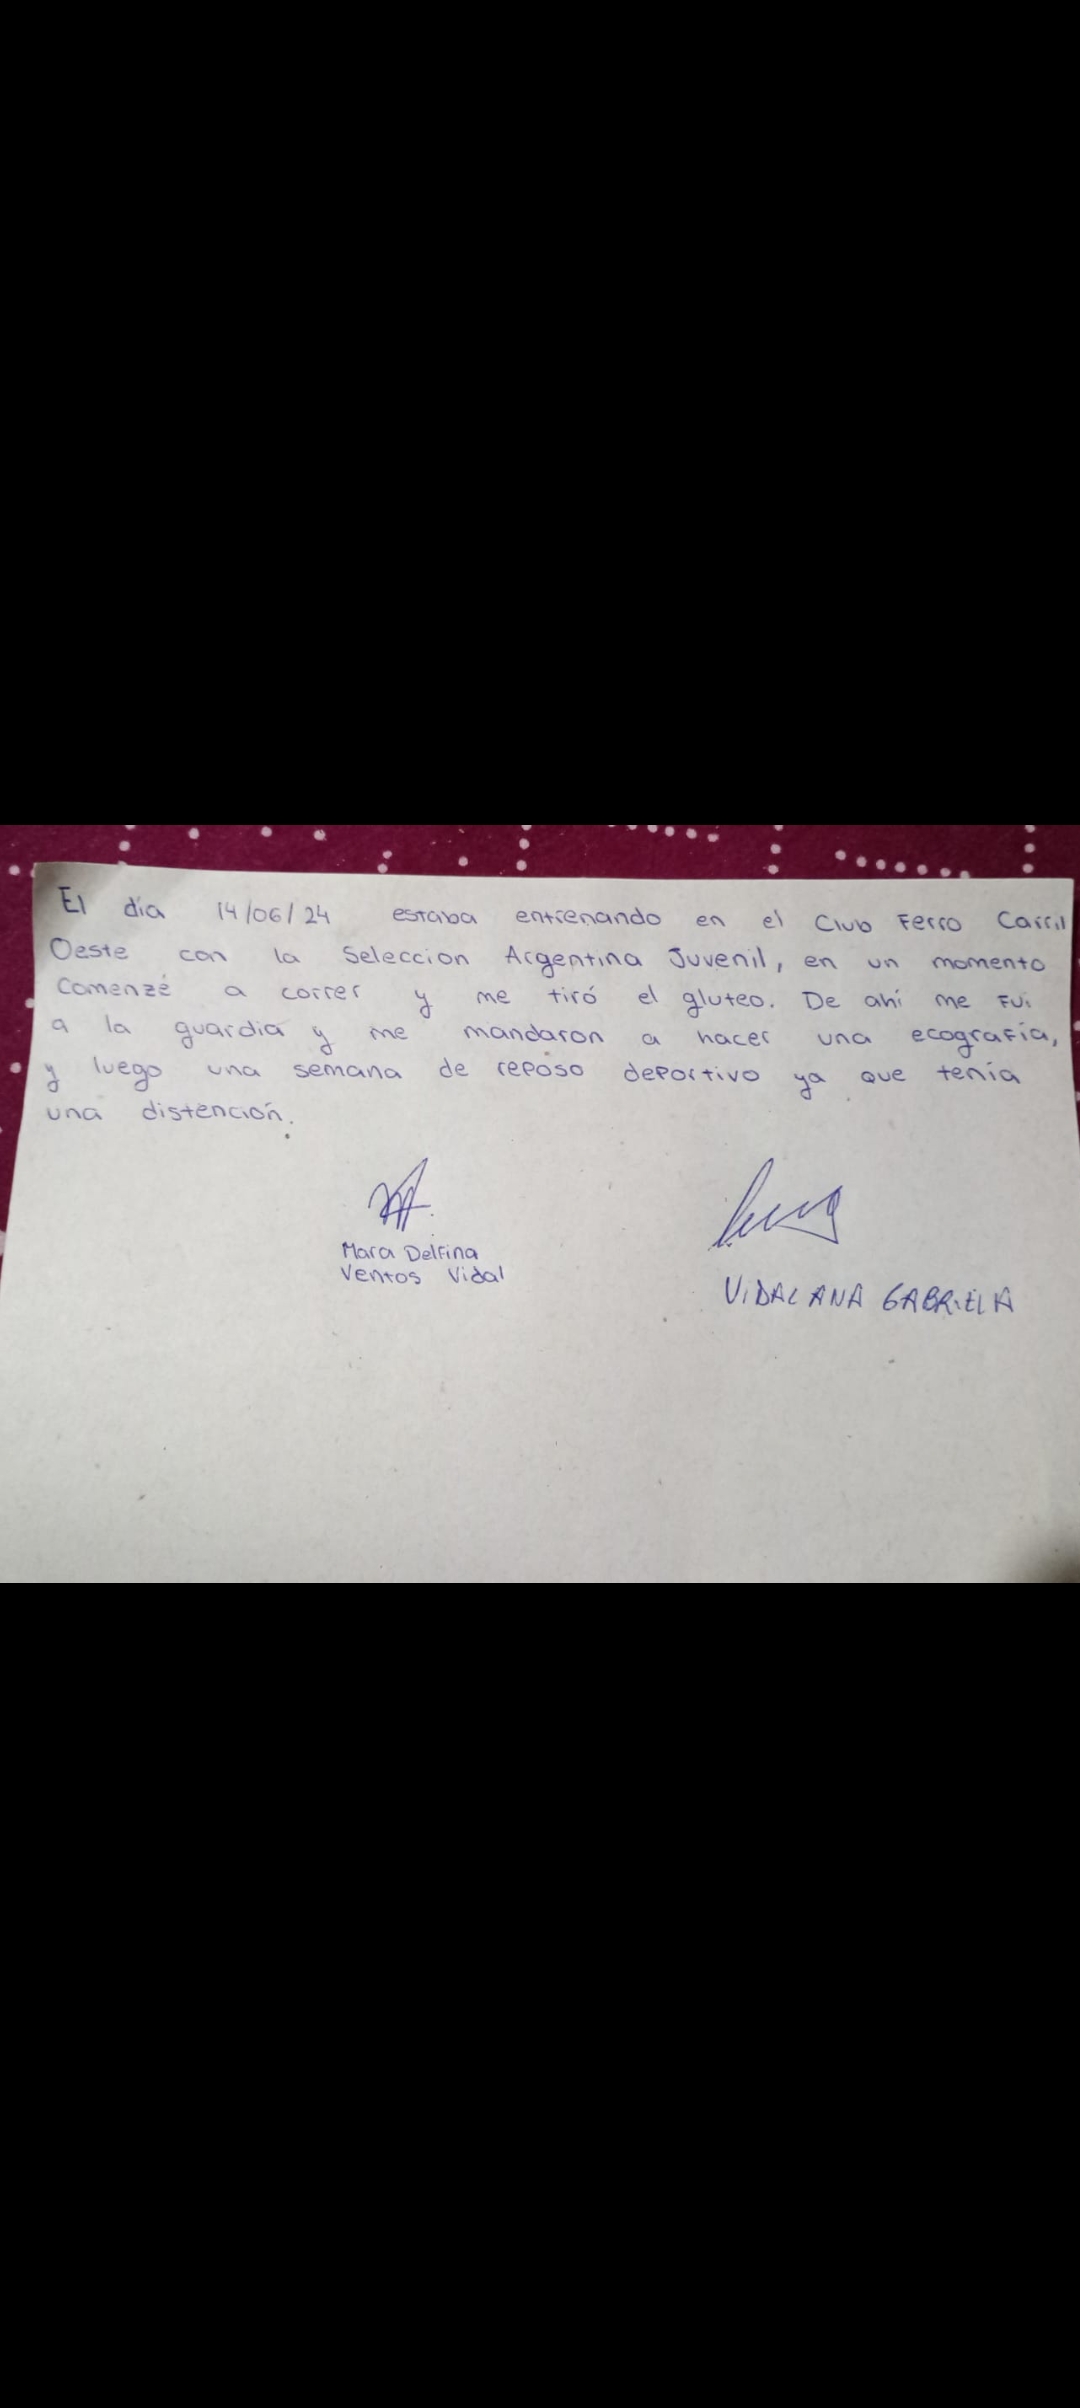 El día 14/06/24 estaba entrenando en el Club Ferro Carril
Oeste con la Seleccion Argentina Juvenil, en un momento
Comenzé a correr y me tiró el gluteo. De ahí me fui
a la guardia y me mandaron a hacer una ecografía,
y luego una semana de reposo deportivo ya que tenía
una distención.
Mara Delfina
Ventos Vidal
VIDAL ANA GABRIELA